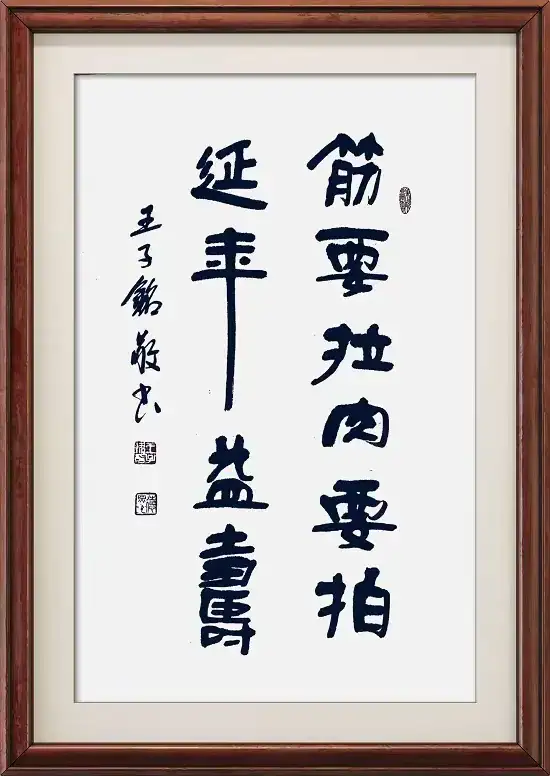 筋要拉肉要拍
延年益壽
王子銘敬书